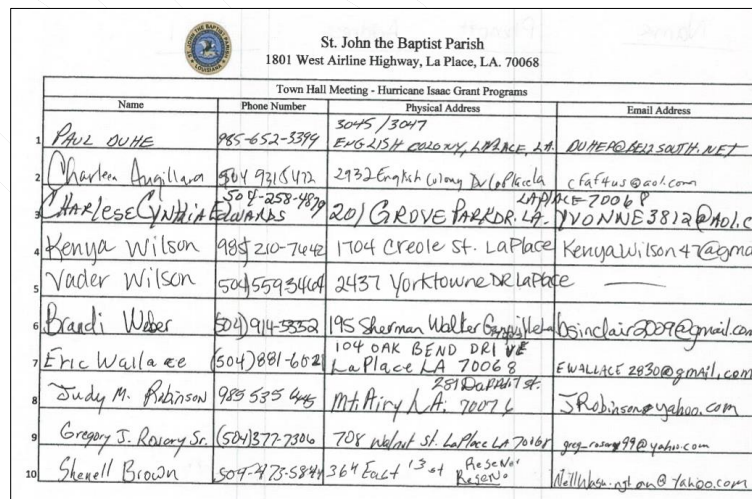 St. John the Baptist Parish
1801 West Airline Highway, La Place, LA. 70068
Town Hall Meeting - Hurricane Isaac Grant Programs
Name Phone Number Physical Address Email Address
1 PAUL DUHE 985-652-3394 3045/3047 ENGLISH COLONY, LAPLACE, LA. DUHEP@BELLSOUTH.NET
2 Charleen 504 9315472 2932 English Colony Dr LaPlace la cfaf4us@aol.com
3 CHARLES & CYNTHIA EDWARDS 504-258-4879 201 GROVE PARK DR. LA. LAPLACE 70068 YVONNE3812@AOL.C
4 Kenya Wilson 985 210-7642 1704 Creole St. LaPlace KenyaWilson47@gma
5 Vader Wilson 504) 559 3464 2437 Yorktowne DR LaPlace
6 Brandi Weber (504) 914-5352 195 Sherman Walker bsinclair2009@gmail.com
7 Eric Wallace (504) 881-6021 104 OAK BEND DRIVE LaPlace LA 70068 EWALLACE2830@gmail.com
8 Judy M. Robinson 985 535 281 St. Mt. Airy LA. 70076 JRobinson@yahoo.com
9 Gregory J. Rosary Sr. (504) 377-7306 708 Walnut St. LaPlace LA 70068 greg_rosary99@yahoo.com
10 Shenell Brown 504-473-5844 364 East 13 st Reserve